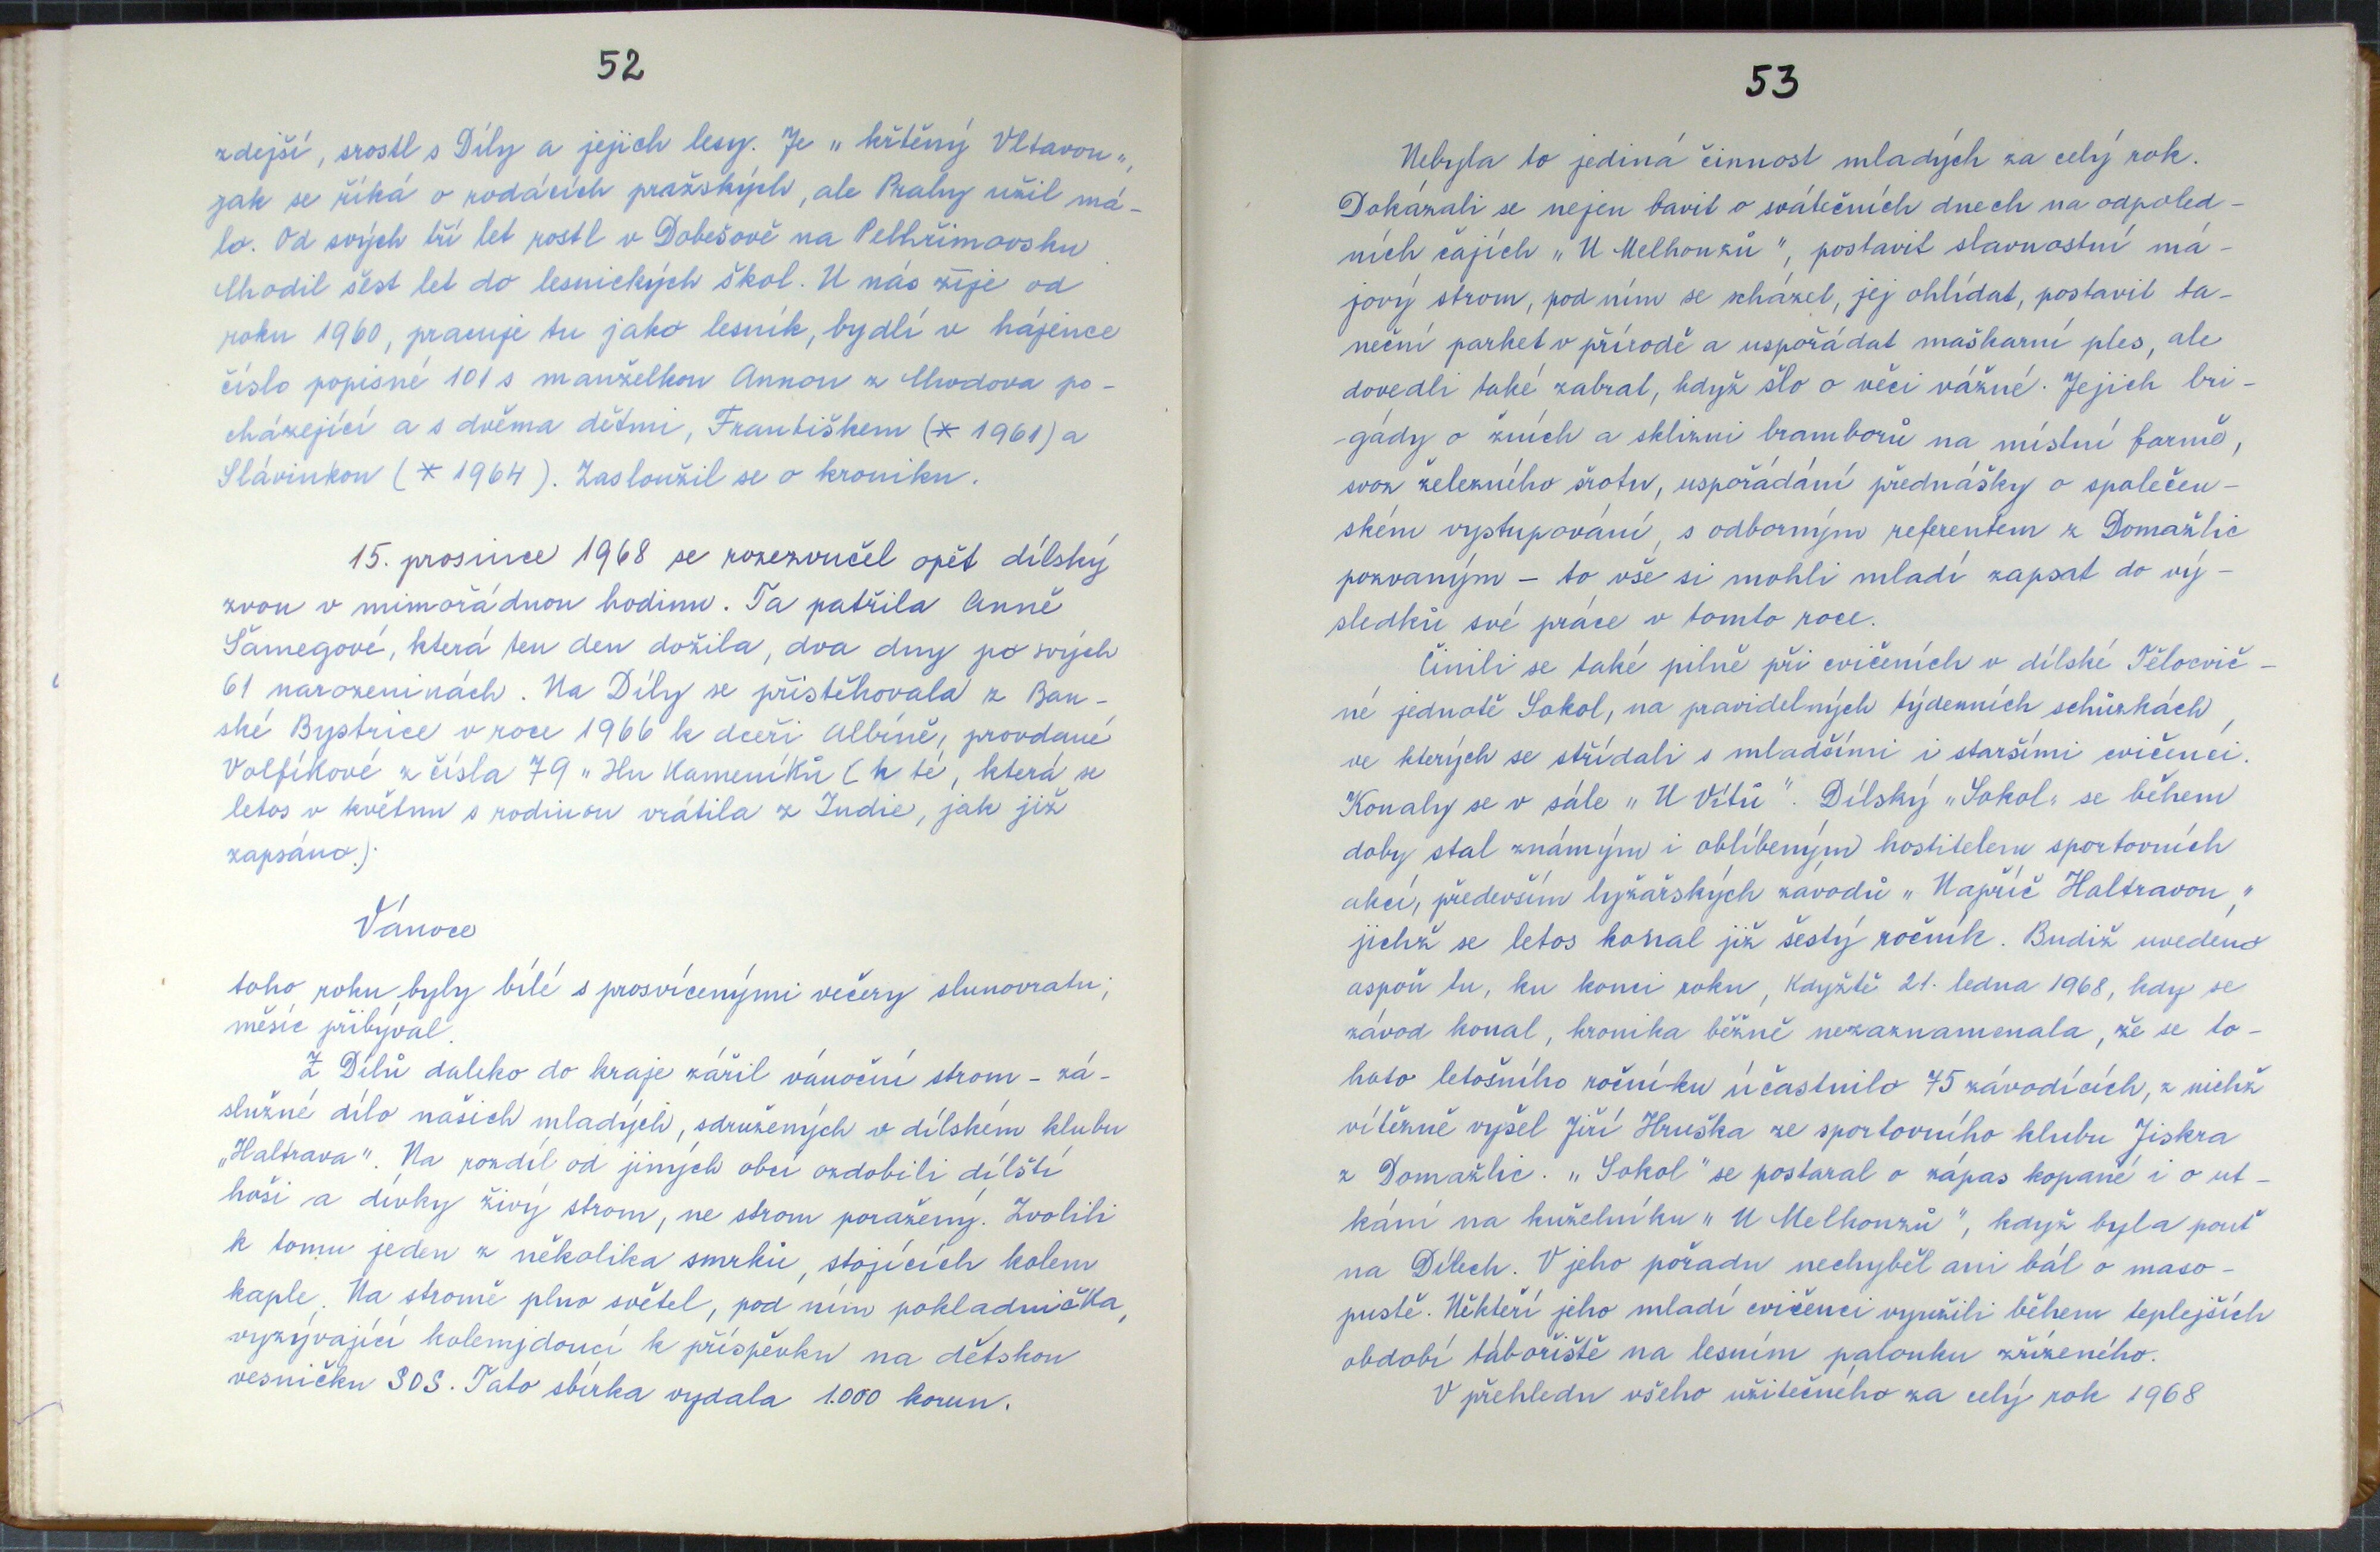 52
zdejší, srostl s Díly a jejich lesy. Je „ křtěný Vltavou „,
jak se říká o rodácích pražských, ale Prahy užil má-
lo. Od svých tří let rostl v Dobešově na Pelhřimovsku
Chodil šest let do lesnických škol. U nás žije od
roku 1960, pracuje tu jako lesník, bydlí v hájence
číslo popisné 101 s manželkou Annou z Chodova po-
cházející a s dvěma dětmi, Františkem (* 1961) a
Slávinkou (* 1964). Zasloužil se o kroniku.
15. prosince 1968 se rozezvučel opět dílský
zvon v mimořádnou hodinu. Ta patřila Anně
Šamegové, která ten den dožila, dva dny po svých
61 narozeninách. Na Díly se přistěhovala z Ban-
ské Bystrice v roce 1966 k dceři Albíně, provdané
Volfíkové z čísla 79 „Hu Kameníků (k té, která se
letos v květnu s rodinou vrátila z Indie, jak již
zapsáno).
Vánoce
toho roku byly bílé s prosvícenými večery slunovratu;
měsíc přibýval.
Z Dílů daleko do kraje zářil vánoční strom - zá-
služné dílo našich mladých, sdružených v dílském klubu
„Haltrava". Na rozdíl od jiných obcí ozdobili dílští
hoši a dívky živý strom, ne strom poražený. Zvolili
k tomu jeden z několika smrků, stojících kolem
kaple. Na stromě plno světel, pod ním pokladnička,
vyzývající kolemjdoucí k příspěvku na dětskou
vesničku SOS. Tato sbírka vydala 1.000 korun.
53
Nebyla to jediná činnost mladých za celý rok.
Dokázali se nejen bavit o svátečních dnech na odpoled-
ních čajích „U Melhonzů", postavit slavnostní má-
jový strom, pod ním se scházet, jej ohlídat, postavit ta-
neční parket v přírodě a uspořádat maškarní ples, ale
dovedli také zabrat, když šlo o věci vážné. Jejich bri-
-gády o žních a sklizni bramborů na místní farmě,
svoz železného šrotu, uspořádání přednášky o společen-
ském vystupování, s odborným referentem z Domažlic
pozvaným - to vše si mohli mladí zapsat do vý-
sledků své práce v tomto roce.
Činili se také pilně při cvičeních v dílské Tělocvič-
né jednotě Sokol, na pravidelných týdenních schůzkách,
ve kterých se střídali s mladšími i staršími cvičenci.
Konaly se v sále „U Vítů". Dílský „Sokol„ se během
doby stal známým i oblíbeným hostitelem sportovních
akcí, především lyžařských závodů „Napříč Haltravou„,
jichž se letos konal již šestý ročník. Budiž uvedeno
aspoň tu, ku konci roku, když tě 21. ledna 1968, kdy se
závod konal, kronika běžně nezaznamenala, že se to-
hoto letošního ročníku účastnilo 75 závodících, z nichž
vítězně vyšel Jiří Hruška ze sportovního klubu Jiskra
z Domažlic. „Sokol" se postaral o zápas kopané i o ut-
kání na kuželníku „U Melhonzů", když byla pouť
na Dílech. V jeho pořadu nechyběl ani bál o maso-
pustě. Někteří jeho mladí cvičenci využili během teplejších
období tábořiště na lesním palouku zřízeného.
V přehledu všeho užitečného za celý rok 1968